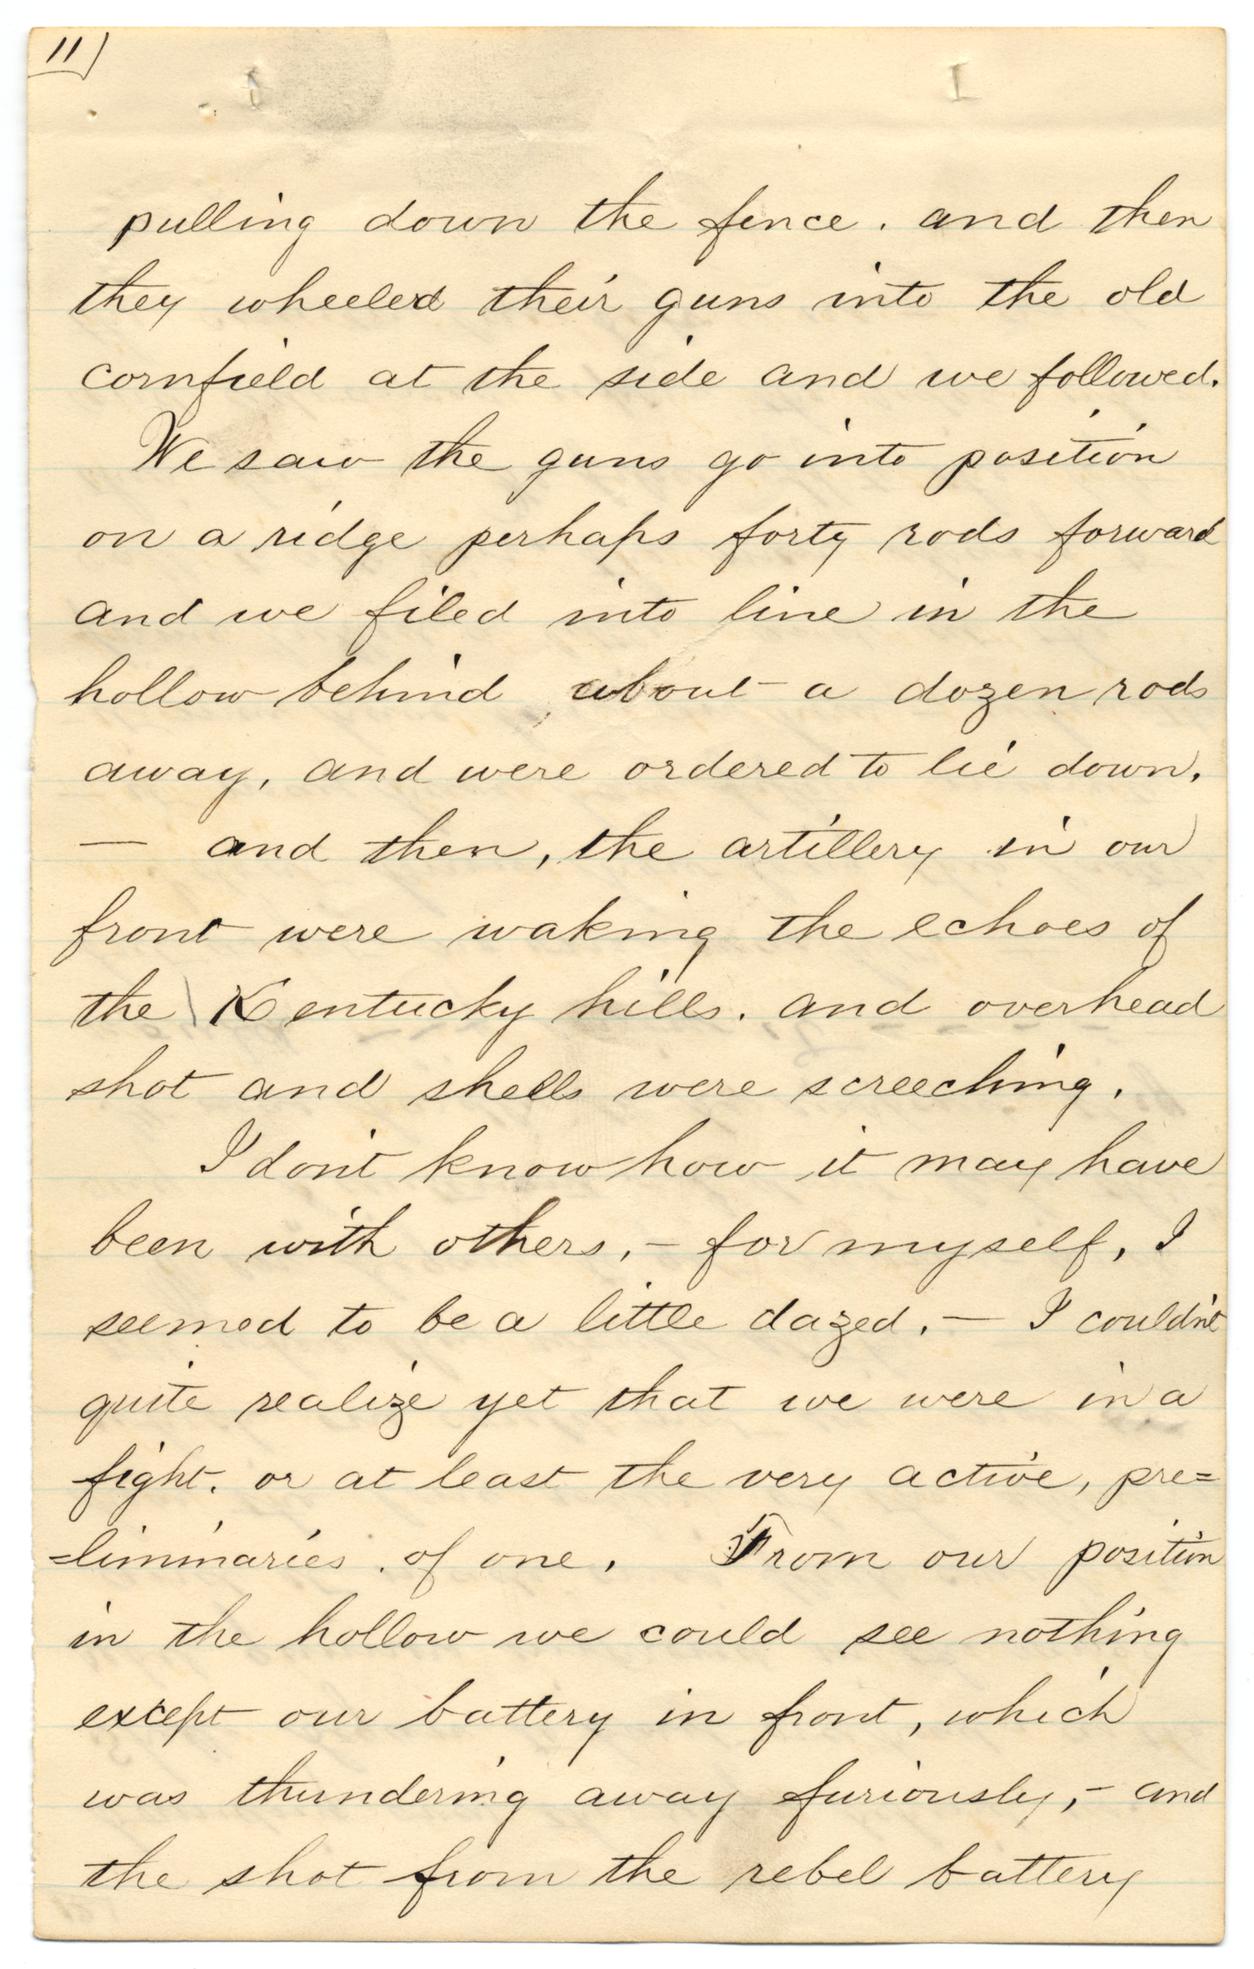 11)
pulling down the fence. and then
they wheeled their guns into the old
cornfield at the side and we followed.
We saw the guns go into position
on a ridge perhaps forty rods forward
and we filed into line in the
hollow behind about a dozen rods
away, and were ordered to lie down.
— and then, the artillery in our
front were waking the echoes of
the Kentucky hills. and overhead
shot and shells were screeching.
I don't know how it may have
been with others, – for myself, I
seemed to be a little dazed. — I couldn't
quite realize yet that we were in a
fight. or at least the very active, pre=
=liminaries. of one. From our position
in the hollow we could see nothing
except our battery in front, which
was thundering away furiously, – and
the shot from the rebel battery